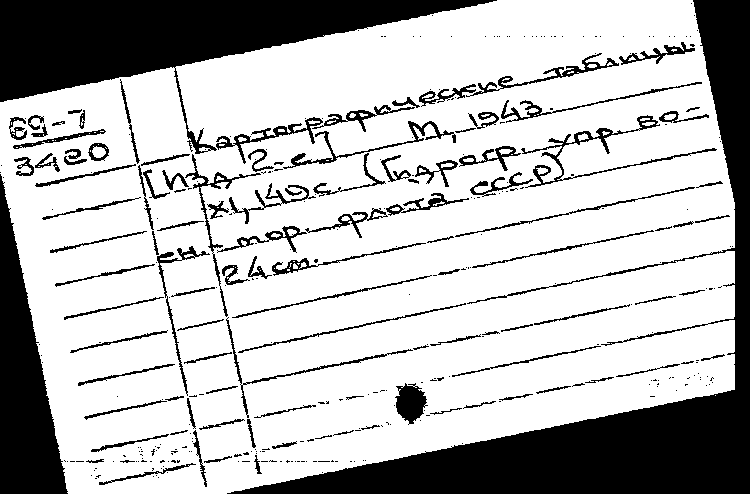 69-7
3420
Картографические таблицы.
[Изд. 2-е.] М., 1943.
XI, 149 с. (Гидрогр. упр. во-
ен.-мор. флота СССР)
24 см.